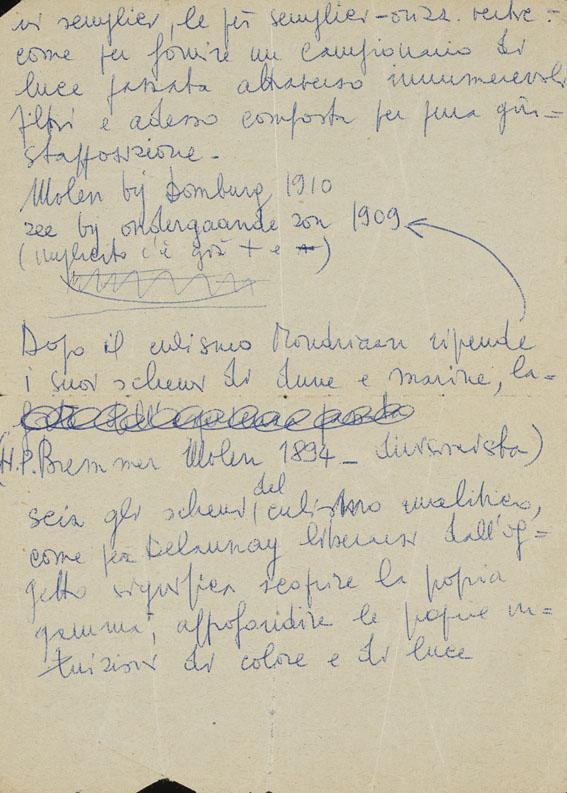 vi semplici, le più semplici - orizz. vertic:
come per fornire un campionario di
luce passata attraverso innumerevoli
filtri e adesso composta per pura giu=
stapposizione -
Molen bij Domburg 1910
zee by ondergaande zon 1909
(implicito c'è già + e
Dopo il cubismo Mondriaan riprende
i suoi schemi di dune e marine, la=
(H.P. Bremmer Molen 1894 - divisionista)
scia gli schemi del cubismo analitico,
come per Delaunay liberarsi dall'og=
getto significa scoprire la propria
gamma, approfondire le proprie in=
tuizioni di colore e di luce